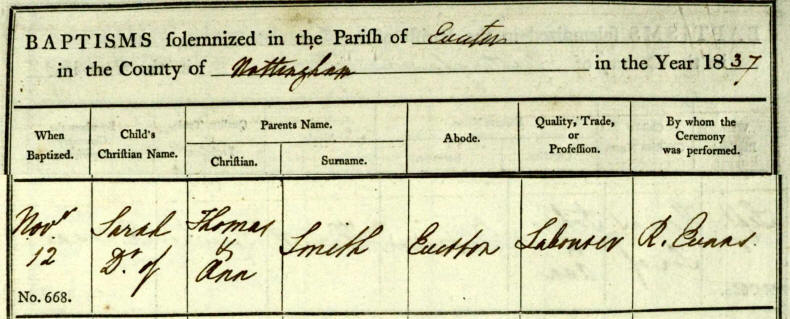 BAPTISMS solemnized in the Parish of Everton
in the County of Nottingham in the Year 1837
When Baptized. Child's Christian Name. Parents Name. Abode. Quality, Trade, or Profession. By whom the Ceremony was performed.
Christian. Surname.
Novr 12 Sarah Dr. of Thomas & Ann Smith Everton Labourer R. Evans.
No. 668.